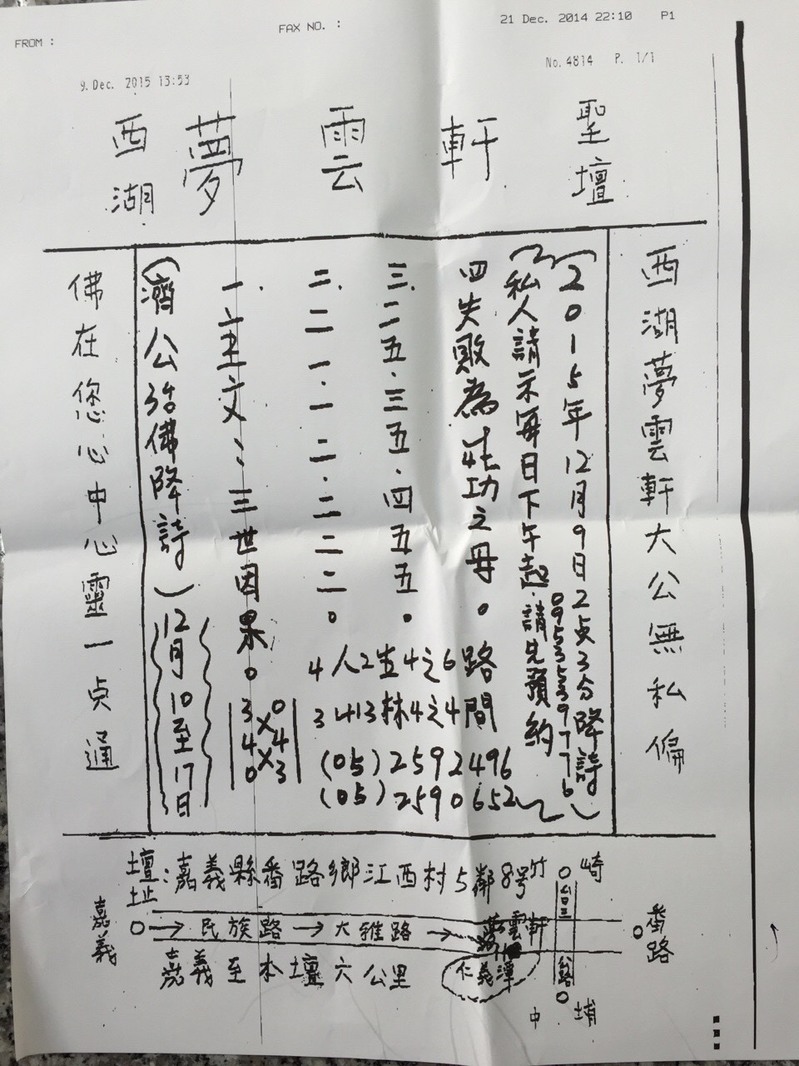 FROM :
FAX NO. :
21 Dec. 2014 22:10 P1
9. Dec. 2015 13:53
No. 4814 P. 1/1
西湖 夢雲軒 聖壇
西湖夢雲軒大公無私偏
(2015年12月9日2点3分降詩)
0955539776
(私人請示每日下午起.請先預約)
四失敗為成功之母。
三.二五.三五.四五五。
二.二一.一二.二二二。
一.主文:三世因果。
(濟公活佛降詩)12月10至17日
4人2生4之6路
3 413林4之4間
(05)2592496
(05)2590652
3 0
4×4
0×3
佛在您心中心靈一点通
壇址:嘉義縣番路鄉江西村5鄰8号
嘉義 ○→民族路→大雅路→夢雲軒
仁義潭
竹崎
台三
公路
中埔
番路
嘉義至本壇六公里